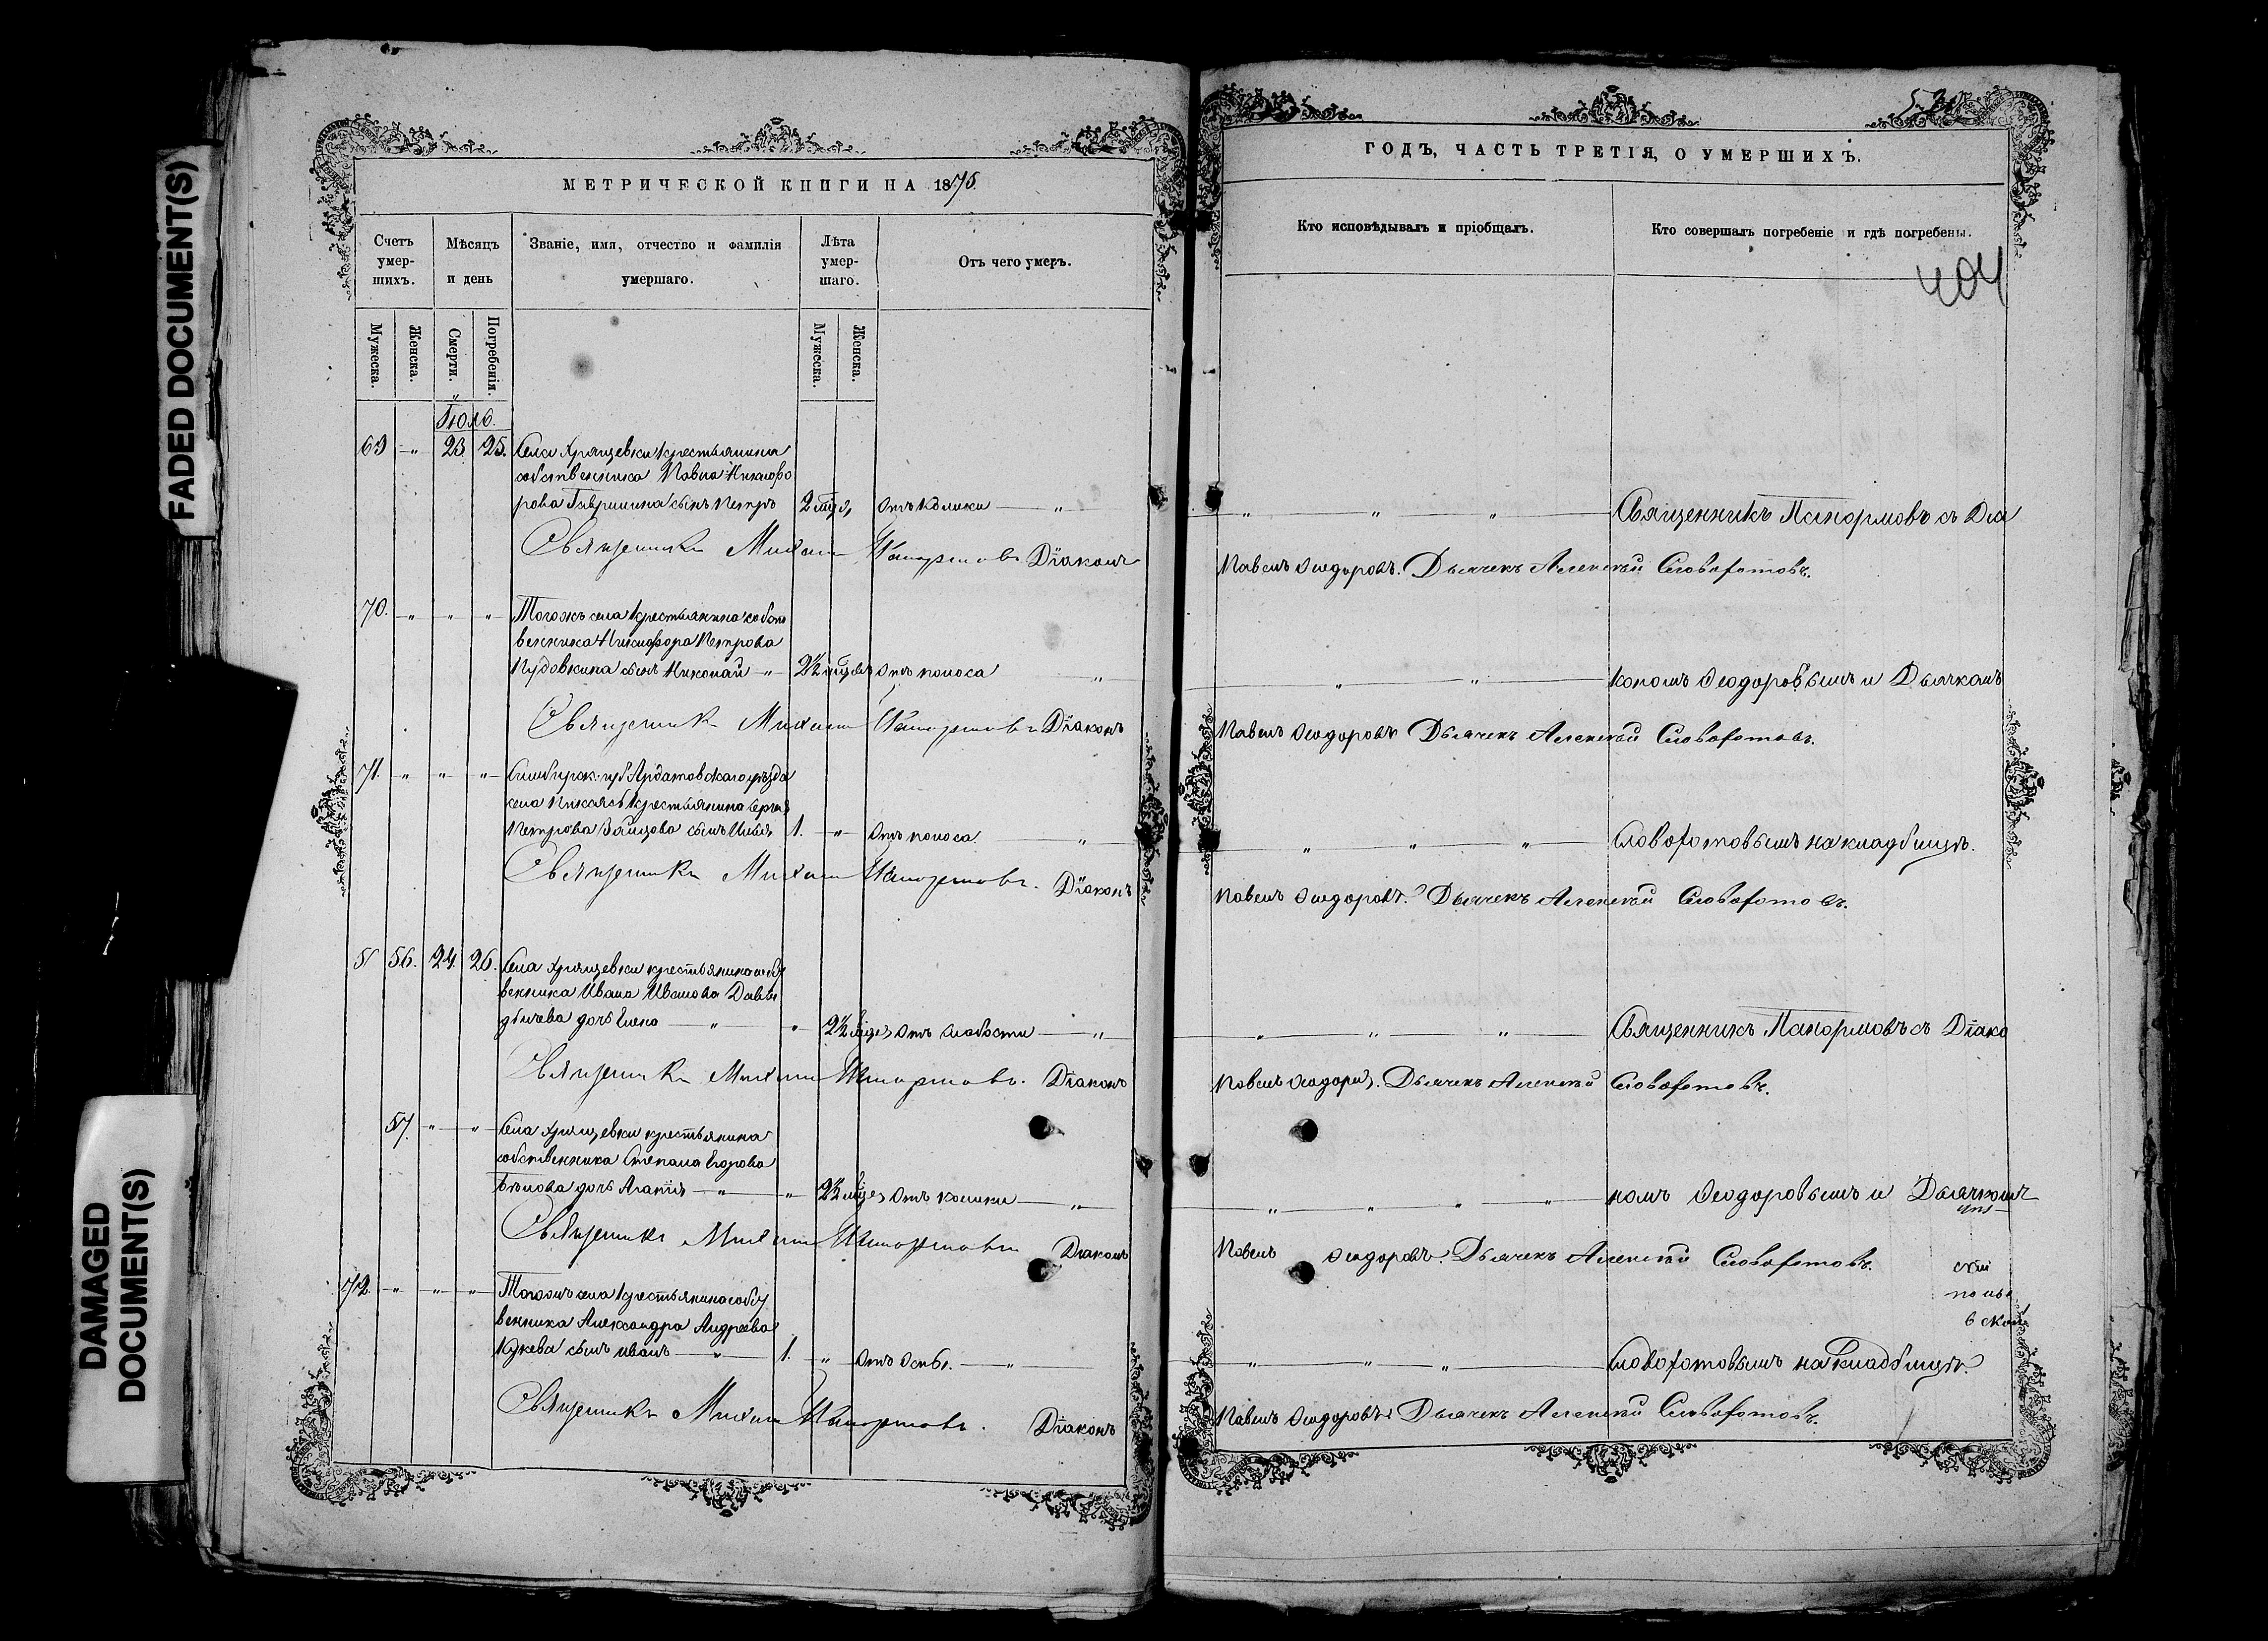 FADED DOCUMENT(S)
DAMAGED DOCUMENT(S)
МЕТРИЧЕСКОЙ КНИГИ НА 1876
Счетъ умер-шихъ.
Мѣсяцъ и день
Званіе, имя, отчество и фамилія умершаго.
Лѣта умер-шаго.
Отъ чего умеръ.
Мужеска.
Женска.
Смерти.
Погребенія.
Мужеска.
Женска.
Іюль.
69 " 23 25. Села Хрящевки крестьянина
собственника Павла Никифо
рова сынъ Петръ 2 отъ колики "
Священникъ Михаилъ Панормовъ Діаконъ
70. " " " Тогожъ села крестьянина собст
венника Никифора Петрова
Пудовкина сынъ Николай " 2½ отъ поноса "
Священникъ Михаилъ Панормовъ Діаконъ
71. " " " Симбирск. губ. Ардатовскаго уѣзда
села крестьянина Сергѣя
Петрова сынъ 1. " отъ поноса "
Священникъ Михаилъ Панормовъ. Діаконъ
56. 24. 26. Села Хрящевки крестьянина собст
венника Ивана Иванова Давы
дычева дочь Елена " " 2½ отъ слабости "
Священникъ Михаилъ Панормовъ. Діаконъ
57. " " Села Хрящевки крестьянина
собственника Степана Егорова
Бѣлова дочь " " 2½ отъ колики "
Священникъ Михаилъ Панормовъ Діаконъ
72. " " " Тогожъ села крестьянина собст
венника Александра Андреева
сынъ Иванъ " 1. " отъ оспы. "
Священникъ Михаилъ Панормовъ. Діаконъ
ГОДЪ, ЧАСТЬ ТРЕТІЯ, О УМЕРШИХЪ.
Кто исповѣдывалъ и пріобщалъ.
Кто совершалъ погребеніе и гдѣ погребены.
404
" " " Священникъ Панормовъ съ Діа
Павелъ Ѳеодоровъ. Дьячекъ Алексѣй Словохотовъ.
" " кономъ Ѳеодоровымъ и Дьячкомъ
Павелъ Ѳеодоровъ Дьячекъ Алексѣй Словохотовъ.
" " " Словохотовымъ на кладбищѣ.
Павелъ Ѳеодоровъ. Дьячекъ Алексѣй Словохотовъ.
" " " Священникъ Панормовъ съ Діако
Павелъ Ѳеодоровъ. Дьячекъ Алексѣй Словохотовъ.
" " " " номъ Ѳеодоровымъ и Дьячкомъ
Павелъ Ѳеодоровъ. Дьячекъ Алексѣй Словохотовъ.
" " " Словохотовымъ на кладбищѣ.
Павелъ Ѳеодоровъ Дьячекъ Алексѣй Словохотовъ.